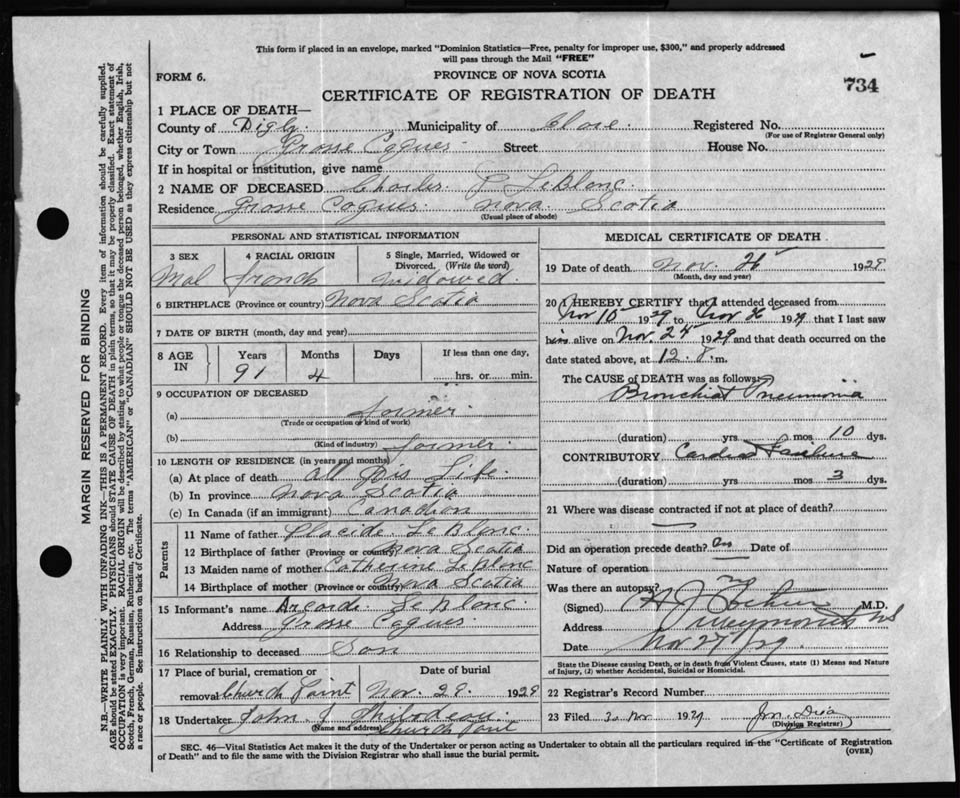 This form if placed in an envelope, marked "Dominion Statistics—Free, penalty for improper use, $300," and properly addressed
will pass through the Mail "FREE"
FORM 6.
PROVINCE OF NOVA SCOTIA
734
CERTIFICATE OF REGISTRATION OF DEATH
1 PLACE OF DEATH—
County of Digby Municipality of Clare Registered No.
(For use of Registrar General only)
City or Town Grosse Coques Street House No.
If in hospital or institution, give name
2 NAME OF DECEASED Charles P LeBlanc
Residence Grosse Coques Nova Scotia
(Usual place of abode)
PERSONAL AND STATISTICAL INFORMATION
3 SEX
Mal
4 RACIAL ORIGIN
French
5 Single, Married, Widowed or
Divorced. (Write the word)
widowed
6 BIRTHPLACE (Province or country) Nova Scotia
7 DATE OF BIRTH (month, day and year)
8 AGE IN
Years Months Days If less than one day,
91 4 hrs. or min.
9 OCCUPATION OF DECEASED
(a) farmer
(Trade or occupation or kind of work)
(b) farmer
(Kind of industry)
10 LENGTH OF RESIDENCE (in years and months)
(a) At place of death all his Life
(b) In province Nova Scotia
(c) In Canada (if an immigrant) Canadian
Parents
11 Name of father Placide LeBlanc
12 Birthplace of father (Province or country) Nova Scotia
13 Maiden name of mother Catherine LeBlanc
14 Birthplace of mother (Province or country) Nova Scotia
15 Informant's name LeBlanc
Address Grosse Coques
16 Relationship to deceased Son
17 Place of burial, cremation or
removal Church Point
Date of burial
Nov. 29. 1929
18 Undertaker John J
(Name and address) Church Point
MEDICAL CERTIFICATE OF DEATH
19 Date of death Nov. 26 1929
(Month, day and year)
20 I HEREBY CERTIFY that I attended deceased from
Nov 15 1929 to Nov 26 1929 that I last saw
him alive on Nov. 25 1929 and that death occurred on the
date stated above, at 12 m.
The CAUSE OF DEATH was as follows:
Bronchial Pneumonia
(duration) yrs. mos. 10 dys.
CONTRIBUTORY Cardiac Failure
(duration) yrs. mos. 3 dys.
21 Where was disease contracted if not at place of death?
Did an operation precede death? no Date of
Nature of operation
Was there an autopsy? no
(Signed) M.D.
Address Weymouth NS
Date Nov 27/29.
State the Disease causing Death, or in death from Violent Causes, state (1) Means and Nature
of Injury, (2) whether Accidental, Suicidal or Homicidal.
22 Registrar's Record Number
23 Filed Nov 1929
(Division Registrar)
SEC. 46—Vital Statistics Act makes it the duty of the Undertaker or person acting as Undertaker to obtain all the particulars required in the "Certificate of Registration
of Death" and to file the same with the Division Registrar who shall issue the burial permit.
(OVER)
MARGIN RESERVED FOR BINDING
N.B.—WRITE PLAINLY WITH UNFADING INK—THIS IS A PERMANENT RECORD. Every item of information should be carefully supplied.
AGE should be stated EXACTLY. PHYSICIANS should STATE CAUSE OF DEATH in plain terms, so that it may be properly classified. Exact statement of
OCCUPATION is very important. RACIAL ORIGIN will be described by stating to what people or tongue the deceased person belonged, whether English, Irish,
Scotch, French, German, Russian, Ruthenian, etc. The terms "AMERICAN" or "CANADIAN" SHOULD NOT BE USED as they express citizenship but not
a race or people. See instructions on back of Certificate.